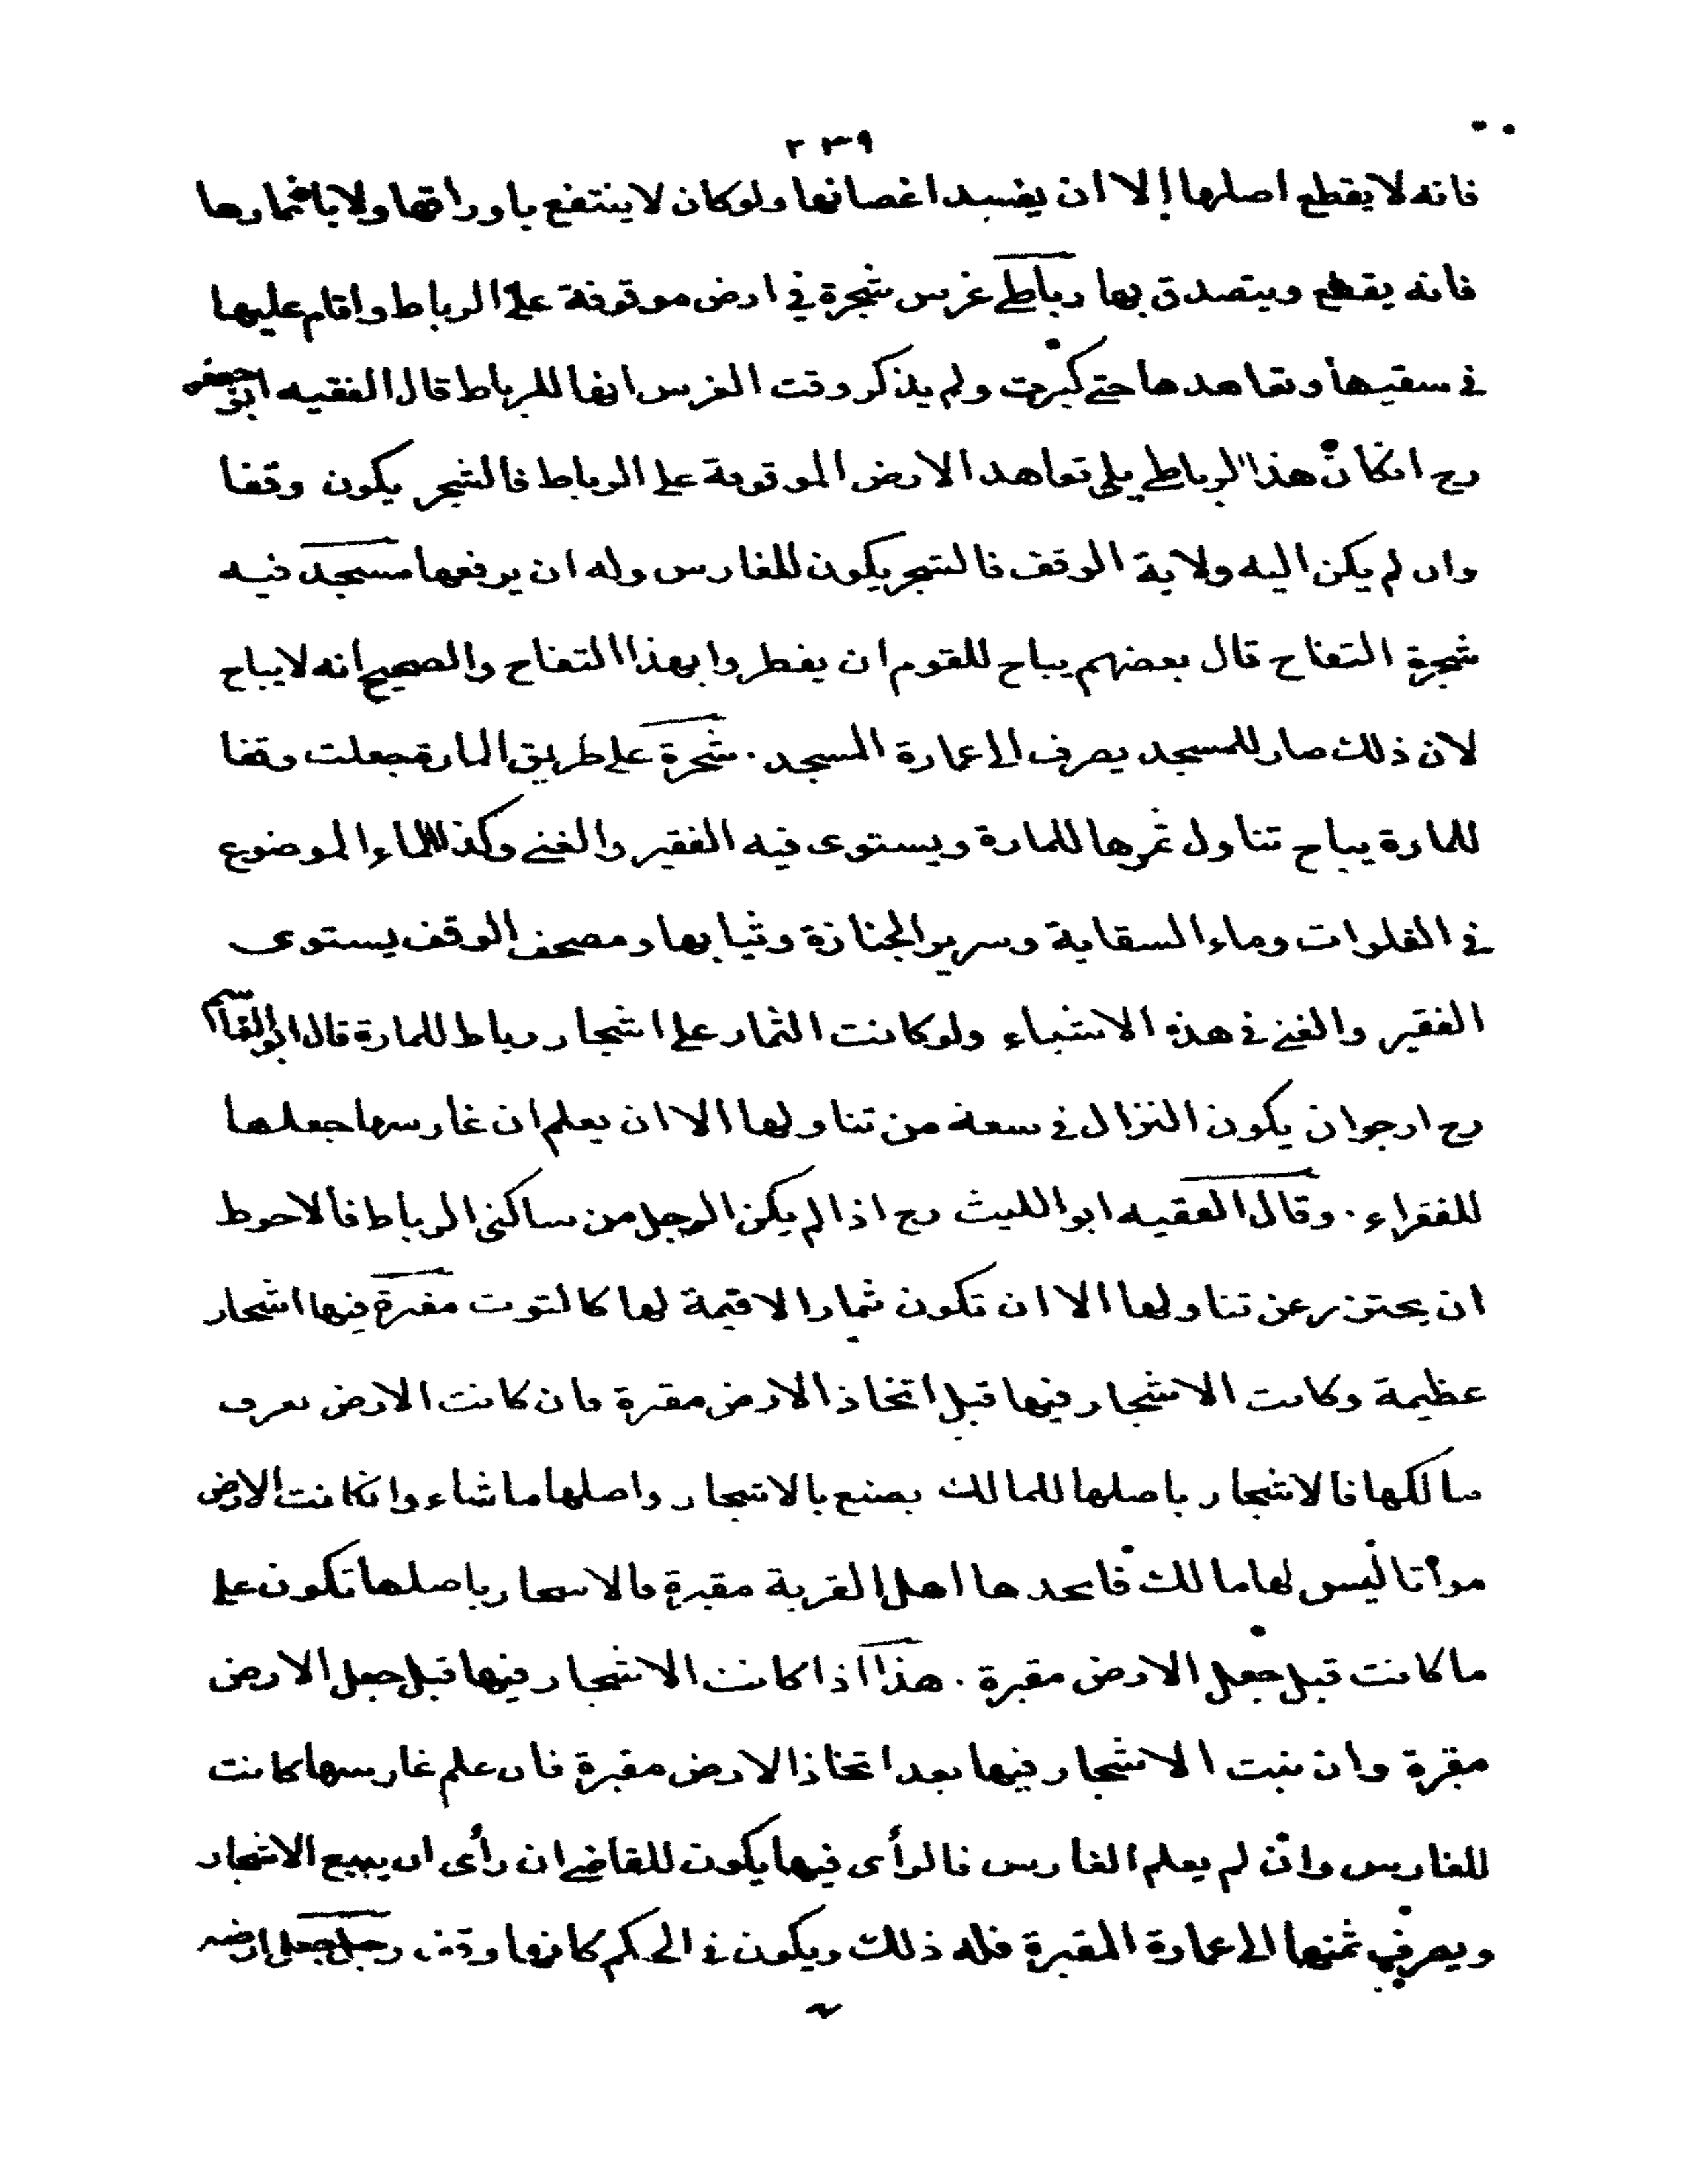 ٢٣٩
فانه لا يقطع اصلها إلا ان يفسد اغصانها ولوكان لا ينتفع باوراقها ولا باثمارها
فانه يقطع ويتصدق بها رباطي غرس شجرة في ارض موقوفة على الرباط واقام عليها
في سقيها وتعاهدها حتى كبرت ولم يذكر وقت الغرس انها للرباط قال الفقيه ابو جعفر
رح انكان هذا الرباطي يلي تعاهد الارض الموقوفة على الرباط فالشجر يكون وقفا
وان لم يكن اليه ولاية الوقف فالشجر يكون للغارس وله ان يرفعها مسجد فيه
شجرة التفاح قال بعضهم يباح للقوم ان يفطروا بهذا التفاح والصحيح انه لا يباح
لان ذلك صار للمسجد يصرف الى عمارة المسجد . شجرة على طريق المارة جعلت وقفا
للمارة يباح تناول ثمرها للمارة ويستوى فيه الفقير والغنى وكذا الماء الموضوع
في الفلوات وماء السقاية وسرير الجنازة وثيابها ومصحف الوقف يستوى
الفقير والغني في هذه الاشياء ولوكانت الثمار على اشجار رباط للمارة قال ابو القاسم
رح ارجوان يكون النزال في سعة من تناولها الا ان يعلم ان غارسها جعلها
للفقراء . وقال الفقيه ابو الليث رح اذا لم يكن الرجل من ساكنى الرباط فالاحوط
ان يحترز عن تناولها الا ان تكون ثمارا لا قيمة لها كالتوت مقبرة فيها اشجار
عظيمة وكانت الاشجار فيها قبل اتخاذ الارض مقبرة فان كانت الارض تعرف
مالكها فالاشجار باصلها للمالك يصنع بالاشجار واصلها ماشاء وانكانت الارض
مواتا ليس لها مالك فاتحدها اهل القرية مقبرة فالاشجار باصلها تكون على
ما كانت قبل جعل الارض مقبرة . هذا اذا كانت الاشجار فيها قبل جعل الارض
مقبرة وان نبت الاشجار فيها بعد اتخاذ الارض مقبرة فان علم غارسها كانت
للغارس وان لم يعلم الغارس فالرأى فيها يكون للقاضي ان رأى ان يبيع الاشجار
ويصرف ثمنها الى عمارة المقبرة فله ذلك ويكون في الحكم كانها وقف رجل جعل ارضه